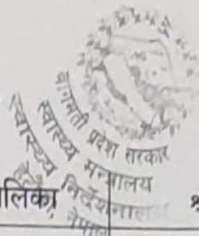 बागमती प्रदेश सरकार
स्वास्थ्य मन्त्रालय
स्वास्थ्य निर्देशनालय
नेपाल
लिका,